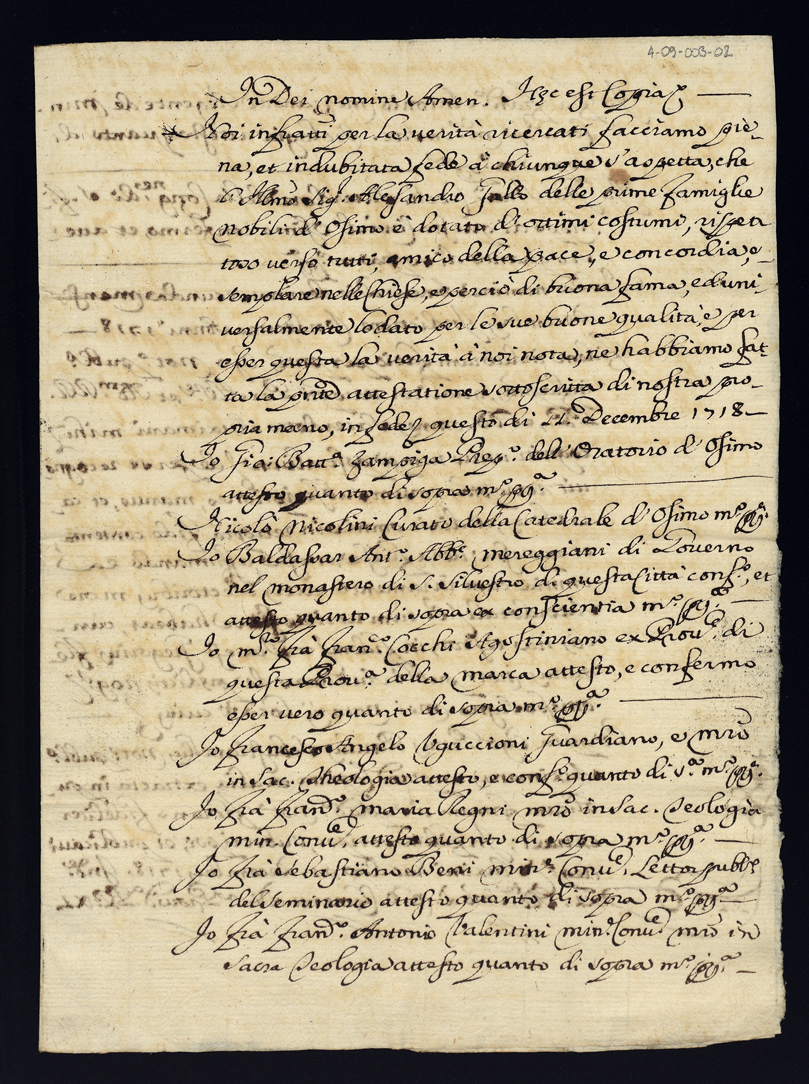 4-09-003-02
In Dei nomine Amen. Hęc est Copia
Noi infratti per la verità ricercati facciamo pie-
na, et indubitata fede à chiunque s'aspetta, che
l'Illmo Sig. Alessandro Gallo delle prime famiglie
nobili d'Osimo è dotato d'ottimi costumi, rispet-
toso verso tutti, amico della pace, e concordia, e-
semplare nelle Chiese, e perciò di buona fama, ed uni-
versalmente lodato per le sue buone qualità, e per
esser questa la verità à noi nota, ne habbiamo fat-
ta la pnte attestatione sottoscritta di nostra pro-
pria mano, in fede questo di 11. Decembre 1718-
Io Gia: Batta. Zampiga Prep.o dell'Oratorio d'Osimo
attesto quanto di sopra m.o pp.a
Nicolò Nicolini Curato della Catedrale d'Osimo m.o pp.a
Io Baldassar Ant.o Abb.e mereggiani di Governo
nel monastero di S. Silvestro di questa Città conf.o, et
attesto quanto di sopra ex conscientia m.o pp.a
Io m.ro frà Fran.co Cocchi Agostiniano ex Prov.e di
questa Prov.a della marca attesto, e confermo
esser vero quanto di sopra m.o pp.a
Io Francesco Angelo Uguccioni Guardiano, e mro
in Sac. Theologia attesto, e conf.o quanto di s.a m.o pp.a
Io frà Fran.o maria Regni mro in Sac. Teologia
min. Conv.e attesto quanto di sopra m.o pp.a
Io frà Sebastiano Beni min.r Conv.e Lettor pubb.o
del Seminario attesto quanto di sopra m.o pp.a
Io frà Fran.o Antonio Valentini min. Conv.e mro in
Sacra Teologia attesto quanto di sopra m.o pp.a